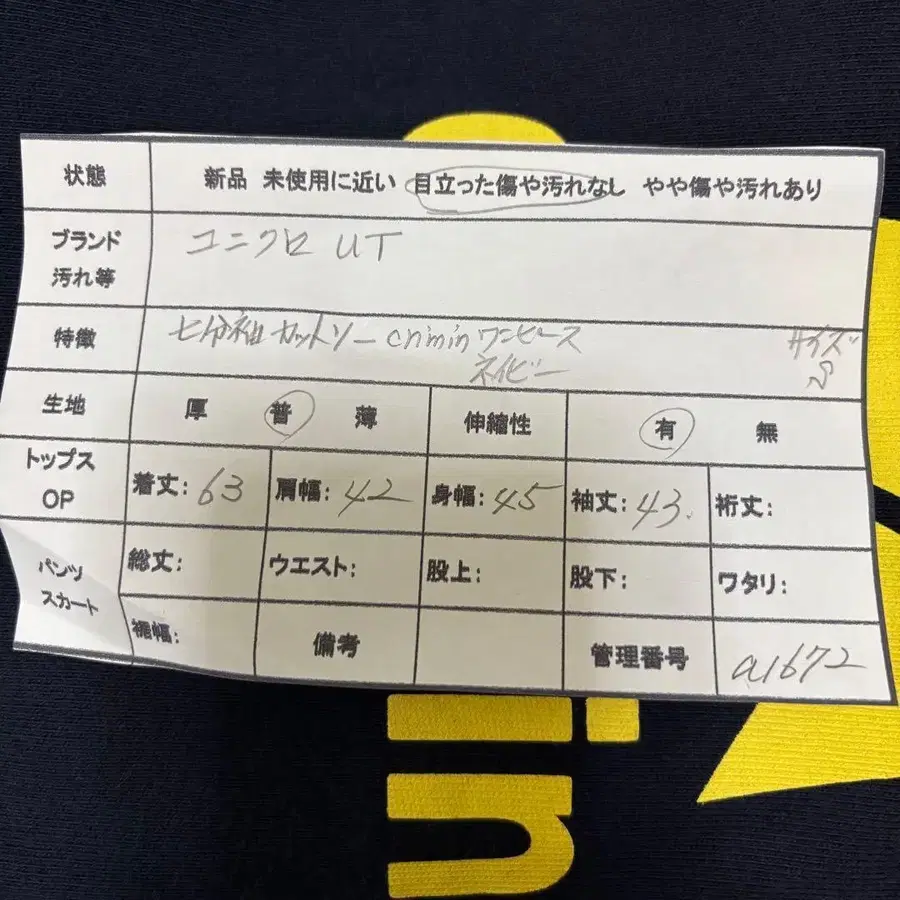 状態 新品 未使用に近い 目立った傷や汚れなし やや傷や汚れあり
ブランド
汚れ等
ユニクロ UT
特徴
七分袖カットソー crimin ワンピース
ネイビー
サイズ
S
生地 厚 普 薄 伸縮性 有 無
トップス
OP
着丈: 63 肩幅: 42 身幅: 45 袖丈: 43. 裄丈:
パンツ
スカート
総丈: ウエスト: 股上: 股下: ワタリ:
裾幅: 備考 管理番号 a1672
in